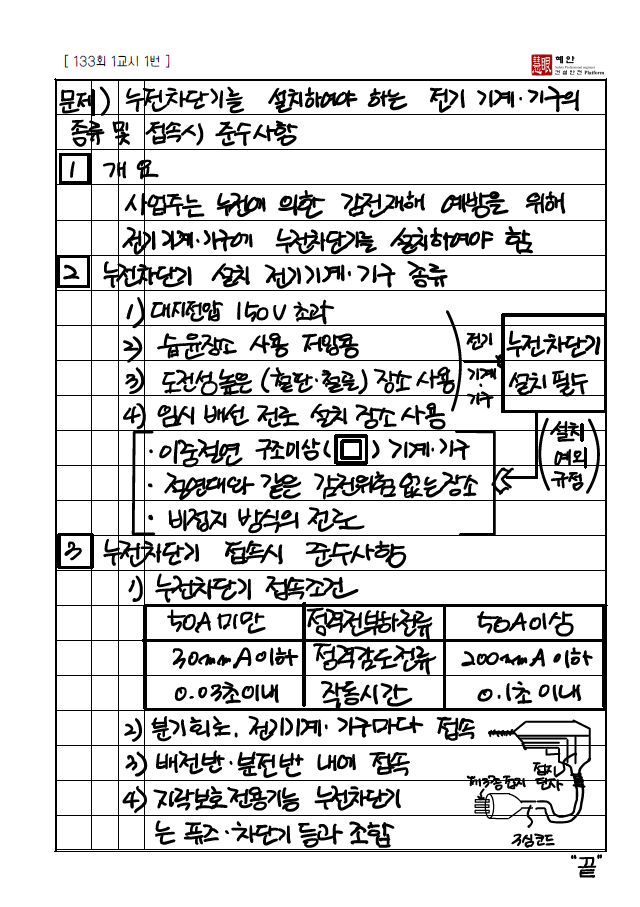 [ 133회 1교시 1번 ]
慧眼 혜안
건설안전 Platform
문제) 누전차단기를 설치하여야 하는 전기 기계·기구의
종류 및 접속시 준수사항
1 개요
사업주는 누전에 의한 감전재해 예방을 위해
전기기계·기구에 누전차단기를 설치하여야 함
2 누전차단기 설치 전기기계·기구 종류
1) 대지전압 150V 초과
2) 습윤장소 사용 저압용
3) 도전성높은 (철판·철골) 장소 사용
4) 임시 배선 전로 설치 장소 사용
전기
기계
·
기구
누전차단기
설치 필수
· 이중절연 구조이상( ) 기계·기구
· 절연대와 같은 감전위험 없는장소
· 비접지 방식의 전로
(설치
예외
규정)
3 누전차단기 접속시 준수사항
1) 누전차단기 접속조건
50A미만 정격전부하전류 50A이상
30mmA이하 정격감도전류 200mmA 이하
0.03초이내 작동시간 0.1초 이내
2) 분기회로, 전기기계·기구마다 접속
3) 배전반·분전반 내에 접속
4) 지락보호전용기능 누전차단기
는 퓨즈·차단기 등과 조합
접지
단자
제3종접지
3심코드
"끝"